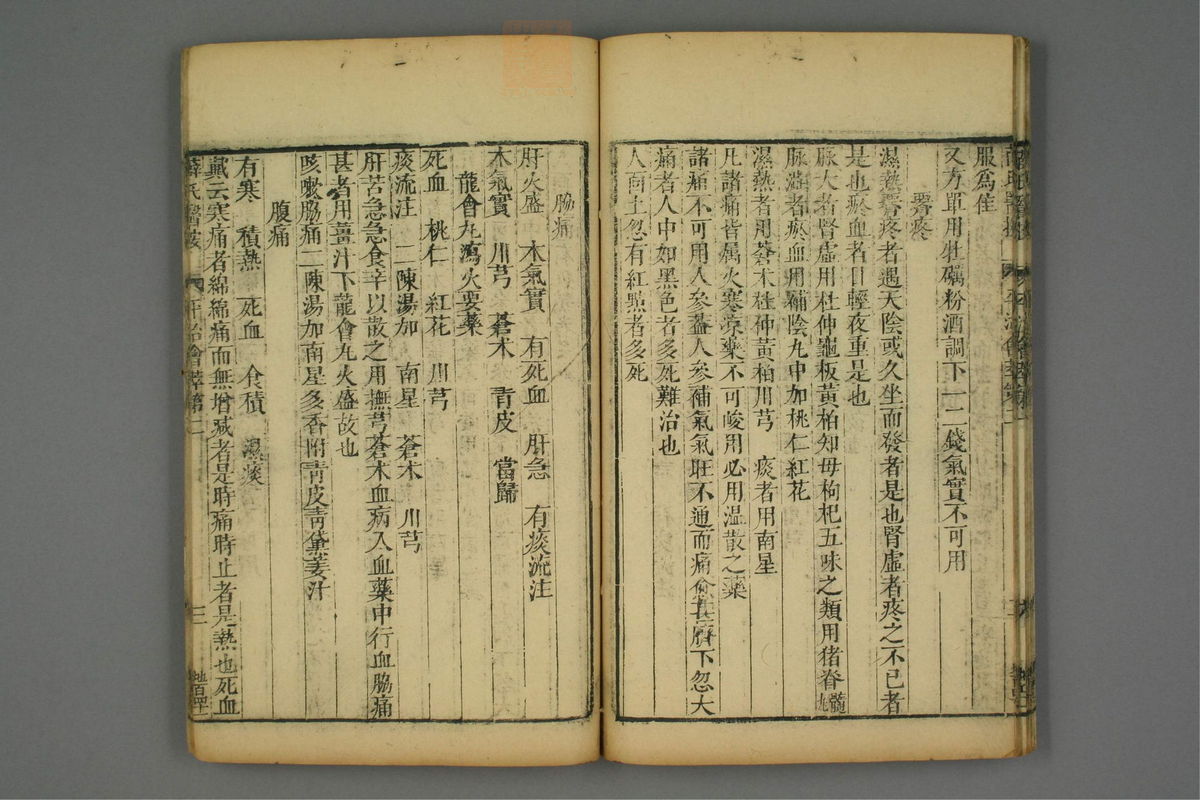 服爲佳
又方單用牡礪粉酒調下一二錢氣實不可用
腎疼
濕熱腎疼者遇天陰或久坐而發者是也腎虛者疼之不已者
是也瘀血者日輕夜重是也
脉大者腎虛用杜仲龜板黃栢知母枸杞五味之類用猪脊髓丸
脉濇者瘀血用補陰丸中加桃仁紅花
濕熱者用蒼术杜仲黃栢川芎 痰者用南星
凡諸痛皆属火寒凉藥不可峻用必用温散之藥
諸痛不可用人參蓋人參補氣氣旺不通而痛愈甚臍下忽大
痛者人中如黑色者多死難治也
人面上忽有紅㸃者多死
脇痛
肝火盛 木氣實 有死血 肝急 有痰流注
木氣實 川芎 蒼术 青皮 當歸
龍會丸瀉火要藥
死血 桃仁 紅花 川芎
痰流注 二陳湯加 南星 蒼术 川芎
肝苦急急食辛以散之用撫芎蒼术血病入血藥中行血脇痛
甚者用薑汁下龍會丸火盛故也
咳嗽脇痛二陳湯加南星多香附青皮青黛姜汁
腹痛
有寒 積熱 死血 食積 濕痰
戴云寒痛者綿綿痛而無增减者是時痛時止者是熱也死血
薛氏醫按 平治會萃第二 三